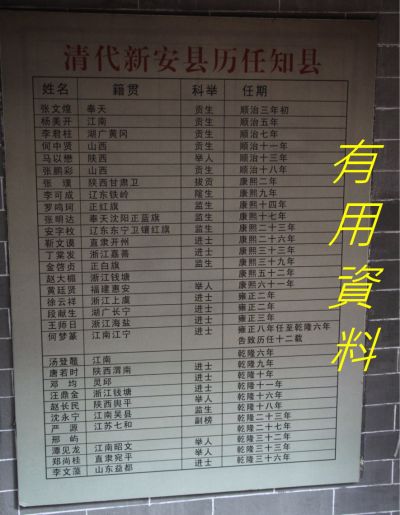 清代新安县历任知县
姓名 籍贯 科举 任期
张文煌 奉天 贡生 顺治三年初
杨美开 江南 贡生 顺治五年
李君柱 湖广黄冈 贡生 顺治七年
何中贤 山西 贡生 顺治十一年
马以懋 陕西 举人 顺治十三年
张鹏彩 山西 贡生 顺治十八年
张璞 陕西甘肃卫 拔贡 康熙二年
李可成 辽东铁岭 荫生 康熙九年
罗鸣珂 正红旗 监生 康熙十四年
张明达 奉天沈阳正蓝旗 监生 康熙十七年
安字枚 辽东东宁卫镶红旗 监生 康熙二十三年
靳文谟 直隶开州 进士 康熙二十六年
丁棠发 浙江嘉善 进士 康熙三十三年
金啓贞 正白旗 监生 康熙三十九年
赵大楣 浙江钱塘 康熙五十二年
黄廷贤 福建惠安 举人 康熙六十一年
徐云祥 浙江上虞 进士 雍正二年
段献生 湖广长宁 进士 雍正二年
王师日 浙江海盐 进士 雍正三年
何梦篆 江南江宁 进士 雍正八年任至乾隆六年
告致历任十二载
汤登鼇 江南 乾隆六年
唐若时 陕西渭南 进士 乾隆九年
邓均 灵邱 进士 乾隆十年
汪鼎金 浙江钱塘 进士 乾隆十一年
赵长民 陕西舆平 举人 乾隆十六年
沈永宁 江南吴县 监生 乾隆十八年
严源 江苏七和 副榜 乾隆二十三年
邢屿 乾隆二十七年
潭见龙 江南昭文 举人 乾隆三十二年
郑尚桂 直隶宛平 举人 乾隆三十三年
李文藻 山东益都 进士 乾隆三十六年
有用資料